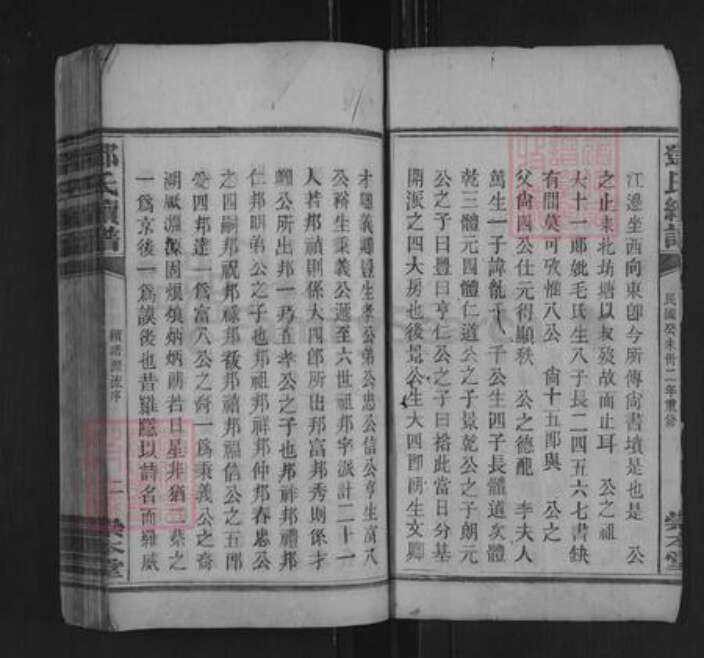 江邊坐西向東卽今所傳尙書墳是也是 公
之止東北坊塘以叔歿故而止耳 公之祖
大十一郎妣毛氏生八子長二四五六七書缺
有間莫可攷惟八公 尙十五郎與 公之
父尙四公仕元得顯秩 公之德配 李夫人
萬生一子諱 千八子公生四子長體道次體
乾三體元四體仁道公之子景乾公之子朗元
公之子曰豐曰亨仁公之子曰 此當日分基
開派之四大房也後景公生大四郎朗生文卿
才 義 豐生孝公弟公忠公信公亨生富八
公裕生秉義公遞至六世祖邦字派計二十一
人若邦禎則係大四郎所出邦富邦秀則係才
卿公所出邦一乃五孝公之子也邦祥邦禮邦
仁邦明弟公之子也邦祖邦祥邦仲邦春忠公
之四嗣邦祝邦祿邦 邦禧邦福信公之五郎
受四邦達一爲富八公之裔一爲秉義公之裔
湖厥淵源固煩燒炳炳朗若日星非猶二蔡之
一爲京後一爲謨後也昔羅隱以詩名而羅威
民國癸未卅二年重修
續譜源流序
二
氏續譜